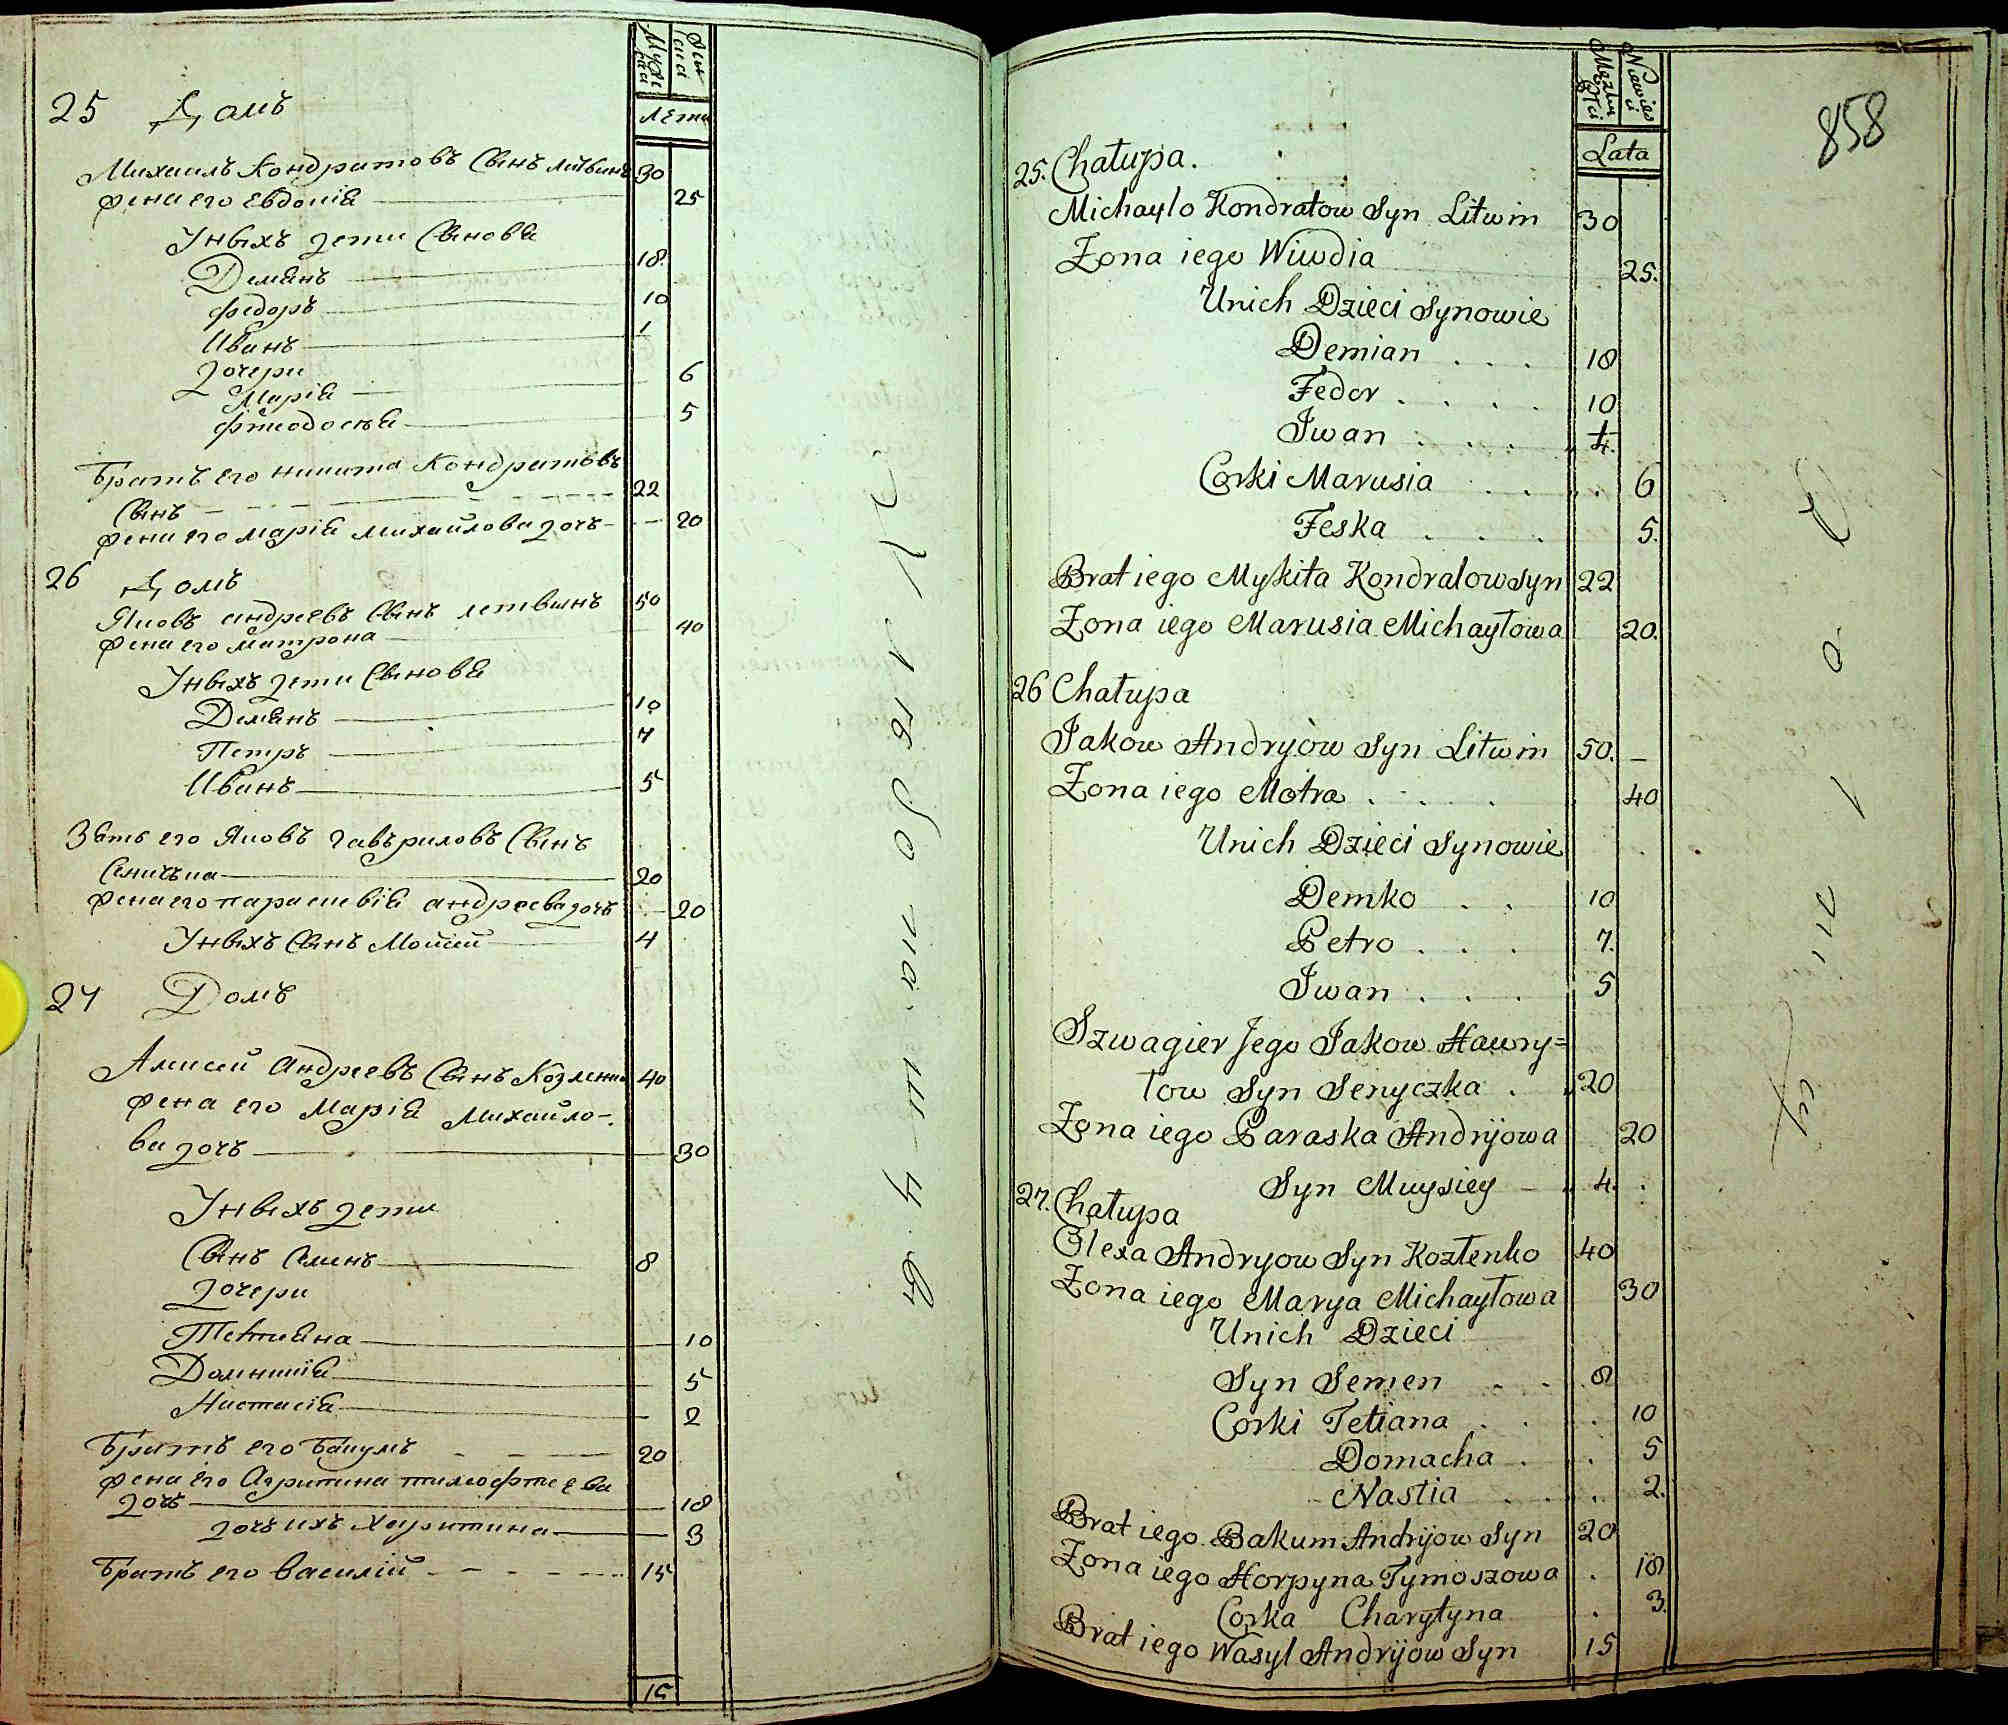 Мужска
Женска
Лѣта
25 Домъ
Михаилъ Кондратовъ Сынъ литвинъ 30
жена его Евдокія 25
У ныхъ дети Сыновя
Демянъ 18
Федоръ 10
Иванъ 1
дочери
Марія 6
Фтеодосья 5
Братъ его никита Кондратовъ
Сынъ 22
жена его марія михайлова дочь 20
26 Домъ
Яковъ андреевъ Сынъ летвинъ 50
жена его матрона 40
У ныхъ дети Сыновя
Демянъ 10
Петръ 7
Иванъ 5
Зять его Яковъ гавъриловъ Сынъ
Сеничъка 20
жена его параскевія андреева дочь 20
У ныхъ Сынъ Мойсей 4
27 Домъ
Алексей Андреевъ Сынъ Козленко 40
жена его Марія Михайло-
ва дочь 30
У ныхъ дети
Сынъ Семенъ 8
дочери
Тетияна 10
Домникія 5
Настасія 2
Братъ его Бакумъ 20
жена его Агрипина тимофтеева
дочь 18
дочь ихъ Харитина 3
Братъ его Василій 15
15
858
Lata
25. Chałupa.
Michayło Kondratow Syn Litwin 30
Zona iego Wiwdia 25.
Unich Dzieci Synowie
Demian . . . 18
Fedor . . . . 10
Iwan . . . .
Corki Marusia . . . . 6
Feska . . . 5.
Brat iego Mykita Kondratow Syn 22
Zona iego Marusia Michayłowa 20.
26 Chałupa
Jakow Andryów Syn Litwin 50. –
Zona iego Motra . . . . 40
Unich Dzieci Synowie
Demko . . 10
Petro . . . 7.
Iwan . . . 5
Szwagier Jego Jakow Hawry=
łow Syn Senyczka . 20
Zona iego Paraska Andrijowa 20
Syn Muysiey – 4.
27. Chałupa
Olexa Andryow Syn Kozłenko 40
Zona iego Marya Michayłowa 30
Unich Dzieci
Syn Semen . . 8
Corki Tetiana . . . 10
Domacha . . 5
Nastia . . . 2.
Brat iego Bakum Andrijow Syn 20
Zona iego Horpyna Tymoszowa . 18
Corka Charytyna . 3.
Brat iego Wasyl Andrijow Syn 15